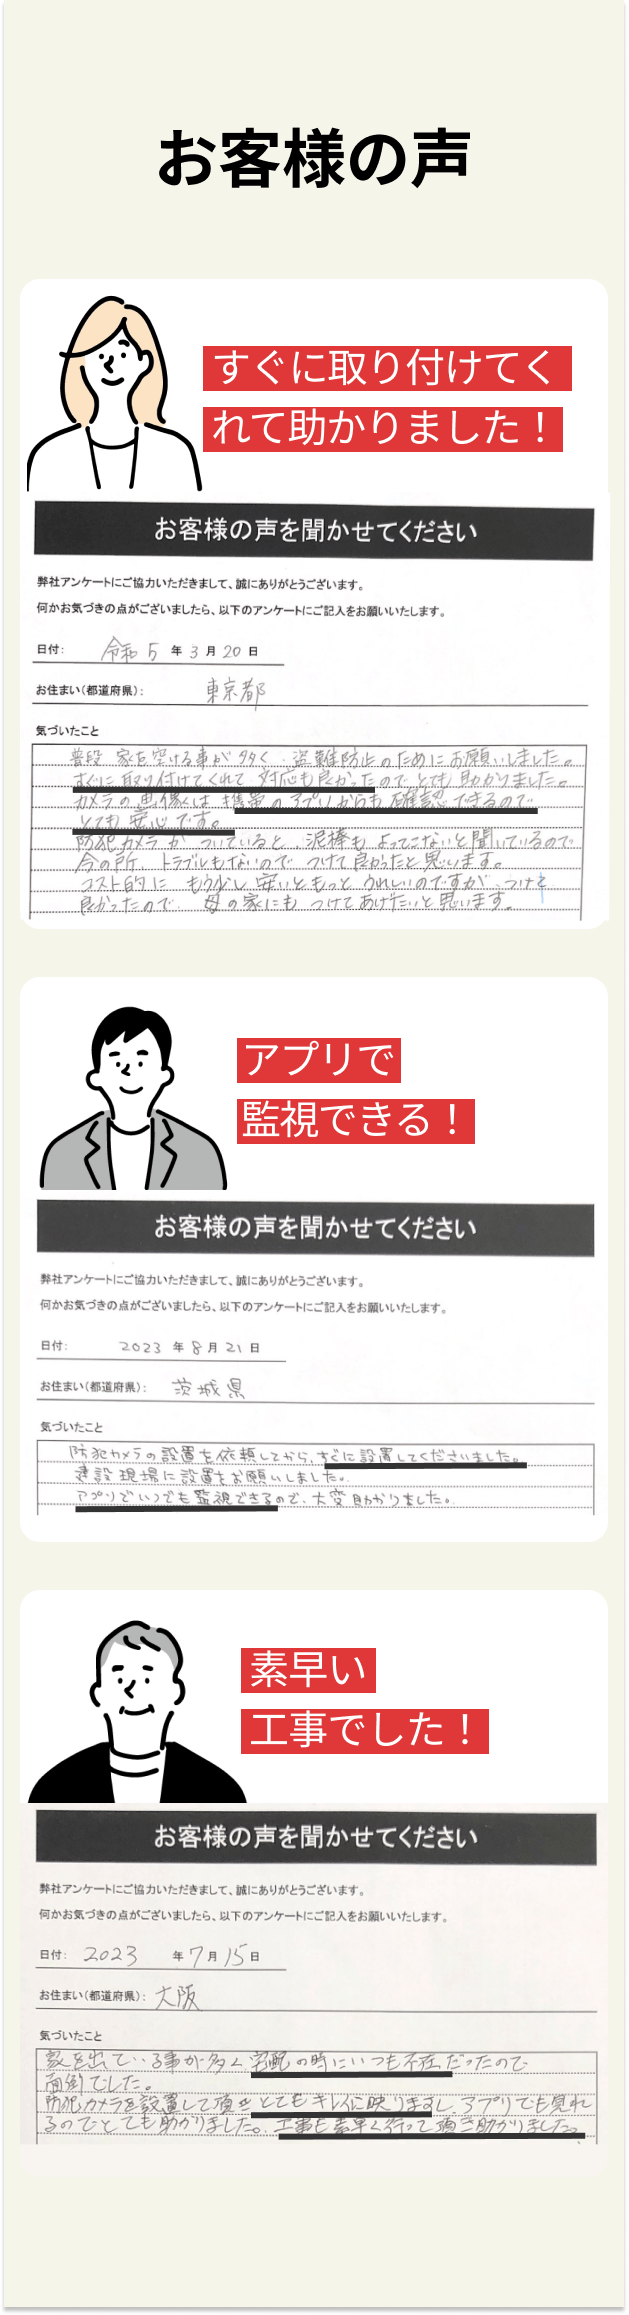 お客様の声
すぐに取り付けてく
れて助かりました！
お客様の声を聞かせてください
弊社アンケートにご協力いただきまして、誠にありがとうございます。
何かお気づきの点がございましたら、以下のアンケートにご記入をお願いいたします。
日付: 令和 5 年 3 月 20 日
お住まい(都道府県): 東京都
気づいたこと
普段 家を空ける事が多く、盗難防止のためにお願いしました。
すぐに取り付けてくれて 対応も良かったので とても助かりました。
カメラの画像は 携帯のアプリからも確認できるので
とても安心です。
防犯カメラが ついていると 泥棒も よってこないと聞いているので
今の所、トラブルもないので つけて良かったと思います。
コスト的に もう少し安いともっと うれしいのですが、つけて
良かったので 母の家にも つけてあげたいと思います。
アプリで
監視できる！
お客様の声を聞かせてください
弊社アンケートにご協力いただきまして、誠にありがとうございます。
何かお気づきの点がございましたら、以下のアンケートにご記入をお願いいたします。
日付: 2023 年 8 月 21 日
お住まい(都道府県): 茨城県
気づいたこと
防犯カメラの設置を依頼してから、すぐに設置してくださいました。
建設現場に設置をお願いしました。
アプリでいつでも監視できるので、大変助かりました。
素早い
工事でした！
お客様の声を聞かせてください
弊社アンケートにご協力いただきまして、誠にありがとうございます。
何かお気づきの点がございましたら、以下のアンケートにご記入をお願いいたします。
日付: 2023 年 7 月 15 日
お住まい(都道府県): 大阪
気づいたこと
家を出ている事が多く 宅配の時にいつも不在だったので
面倒でした。
防犯カメラを設置して頂き とてもキレイに映りますし、アプリでも見れ
るのでとても助かりました。工事も素早く行って頂き助かりました。